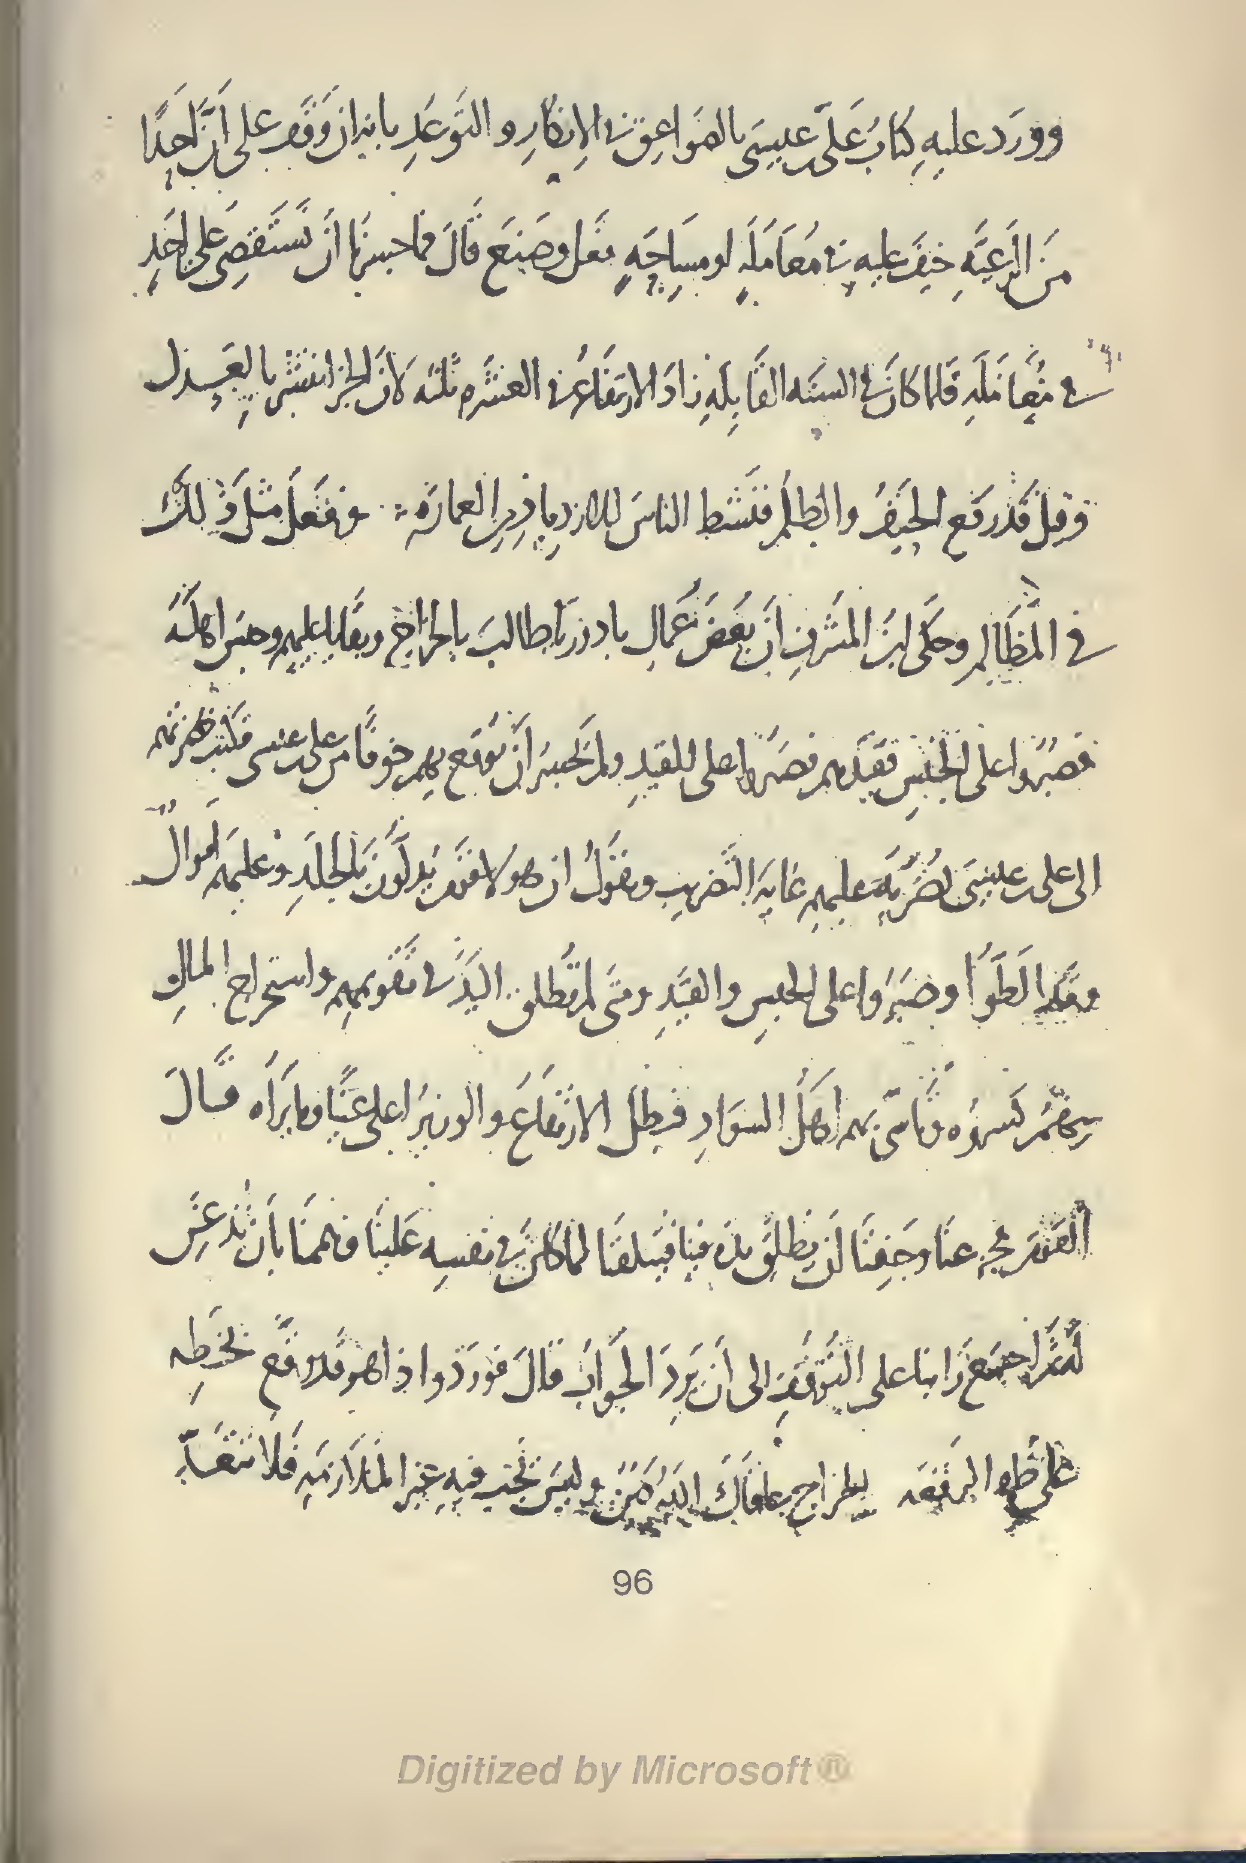 وورَد عليهِ كتابُ علىّ بن عيسَى بالصَواعِق فى الإنكارِ و التوَعُدِ بانه ان وقَف على أنّ أحدًا
منَ الرَعيَّهِ حِيفَ عليهِ فى مُعَامَلَهٍ او مِسَاحَهٍ فعل وصَنع قَالَ فما جسرنا أن نَستَقصِى على احَدٍ
فى مُعَامَلَهِ فلما كانَ فى السنَه القَابلَهِ زادَ الارتفاعُ فى العشره ثلثه لأنّ الخبر انتشر بالعَدل
وقيل قَد رفع الحَيفُ والظلمُ فنشط الناسَ للازدياد فى العمارَه ∴ وفعَلَ مثلَ ذلكَ
فى المَظَالم وحكَى ابن المُشرفِ أنّ بعَض عُمّال بادوريا طالبَ بالخراجِ وبقايا عليهم وحبس اهلَهُ
فصبرُوا على الحَبْسِ فقيدهم فصبَرُوا على القيدِ ولم يَجسر أن يُوقع بهم خوفًا من على بن عيسى فكتب
الى على بن عيسَى يُضَرّبَه عليهم غايه التَضريب ويقولُ ان هولا قوم يُدلّون بالجلَدِ وعليهم أموالٌ
وقد الَطّوا وصَبَرُوا على الحبسِ والقَيدِ ومتَى لم تُطلق اليَدُ فى تقويمهم واستخراج المالِ
منهمُ كسروُه وتأسّى بهم اهلُ السوَادِ فبطل الارتفاعَ والوزيرُ اعلى عَينًا وما يَرَاه قالَ
القَومَ وجَفِنَا أن يُطلِق يده فينا فيتلفنَا لما كان فى نفسِه عَلينَا وهَممنَا بأن نذعن
لهُ ثم اجتمع رَاينا على التَوقفِ الى أن يَرِدَ الجَوابُ قالَ فورَدَ واذا هو قد وقّع بخطِه
على ظهر الرقعَه الخراج عافاكَ اللهُ دَين وليَس يجب فيهِ غير الملازمَهِ فَلا تتعَدّ
96
Digitized by Microsoft®